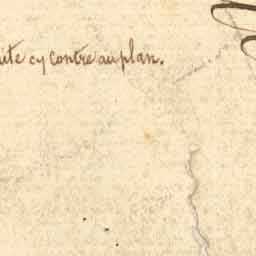 ite cy contre au plan.